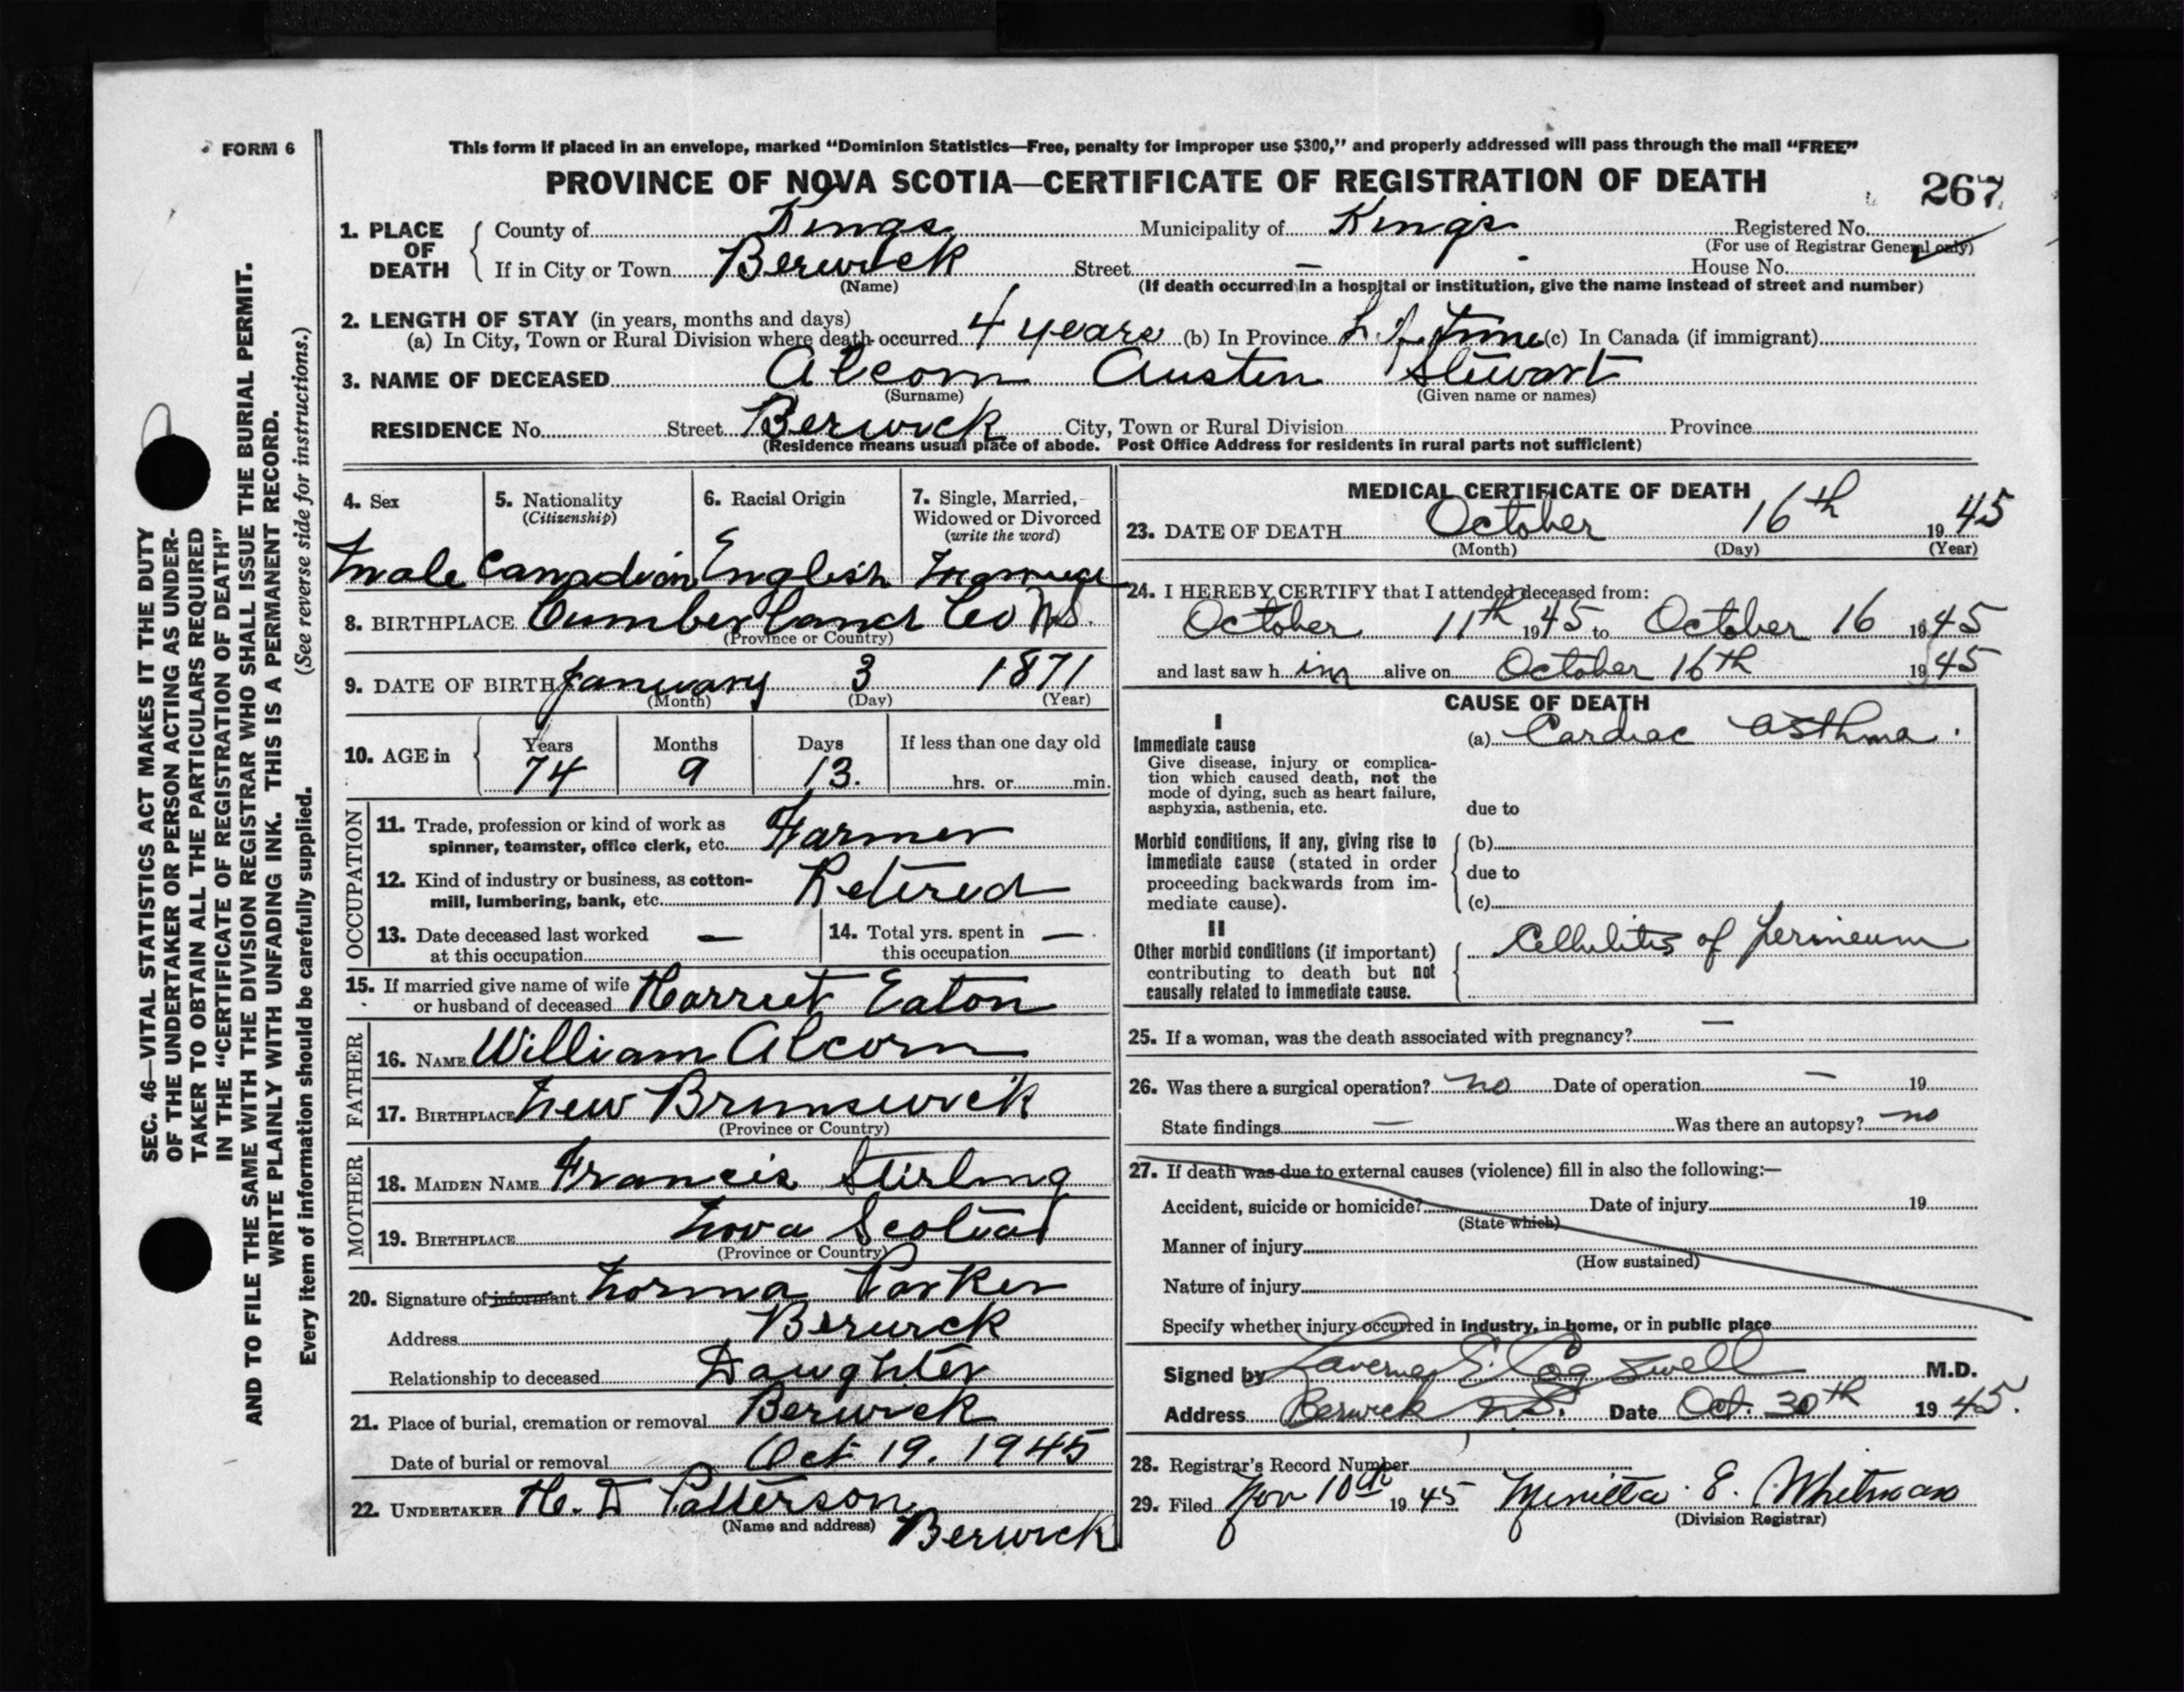 FORM 6
This form if placed in an envelope, marked "Dominion Statistics—Free, penalty for improper use $300," and properly addressed will pass through the mail "FREE"
PROVINCE OF NOVA SCOTIA—CERTIFICATE OF REGISTRATION OF DEATH
267
SEC. 46—VITAL STATISTICS ACT MAKES IT THE DUTY
OF THE UNDERTAKER OR PERSON ACTING AS UNDER-
TAKER TO OBTAIN ALL THE PARTICULARS REQUIRED
IN THE "CERTIFICATE OF REGISTRATION OF DEATH"
AND TO FILE THE SAME WITH THE DIVISION REGISTRAR WHO SHALL ISSUE THE BURIAL PERMIT.
WRITE PLAINLY WITH UNFADING INK. THIS IS A PERMANENT RECORD.
Every item of information should be carefully supplied. (See reverse side for instructions.)
1. PLACE OF DEATH County of Kings Municipality of Kings Registered No.
(For use of Registrar General only)
If in City or Town Berwick Street — House No.
(Name) (If death occurred in a hospital or institution, give the name instead of street and number)
2. LENGTH OF STAY (in years, months and days)
(a) In City, Town or Rural Division where death occurred 4 years (b) In Province Life time (c) In Canada (if immigrant)
3. NAME OF DECEASED Alcorn Austen Stewart
(Surname) (Given name or names)
RESIDENCE No. Street Berwick City, Town or Rural Division Province
(Residence means usual place of abode. Post Office Address for residents in rural parts not sufficient)
4. Sex
Male
5. Nationality
(Citizenship)
Canadian
6. Racial Origin
English
7. Single, Married,
Widowed or Divorced
(write the word)
8. BIRTHPLACE Cumberland Co N.S.
(Province or Country)
9. DATE OF BIRTH January 3 1871
(Month) (Day) (Year)
10. AGE in Years Months Days If less than one day old
74 9 13. hrs. or min.
OCCUPATION
11. Trade, profession or kind of work as
spinner, teamster, office clerk, etc. Farmer
12. Kind of industry or business, as cotton-
mill, lumbering, bank, etc. Retired
13. Date deceased last worked
at this occupation —
14. Total yrs. spent in
this occupation —
15. If married give name of wife
or husband of deceased Harriet Eaton
FATHER
16. NAME William Alcorn
17. BIRTHPLACE New Brunswick
(Province or Country)
MOTHER
18. MAIDEN NAME Francis Stirling
19. BIRTHPLACE Nova Scotia
(Province or Country)
20. Signature of informant Norma Parker
Address Berwick
Relationship to deceased Daughter
21. Place of burial, cremation or removal Berwick
Date of burial or removal Oct 19. 1945
22. UNDERTAKER H. D Patterson
(Name and address) Berwick
MEDICAL CERTIFICATE OF DEATH
23. DATE OF DEATH October 16th 1945
(Month) (Day) (Year)
24. I HEREBY CERTIFY that I attended deceased from:
October 11th 1945 to October 16 1945
and last saw him alive on October 16th 1945
CAUSE OF DEATH
I
Immediate cause
Give disease, injury or complica-
tion which caused death, not the
mode of dying, such as heart failure,
asphyxia, asthenia, etc.
(a) Cardiac asthma.
due to
Morbid conditions, if any, giving rise to
immediate cause (stated in order
proceeding backwards from im-
mediate cause).
(b)
due to
(c)
II
Other morbid conditions (if important)
contributing to death but not
causally related to immediate cause.
Cellulitis of perineum
25. If a woman, was the death associated with pregnancy? —
26. Was there a surgical operation? no Date of operation — 19
State findings — Was there an autopsy? no
27. If death was due to external causes (violence) fill in also the following:—
Accident, suicide or homicide? Date of injury 19
(State which)
Manner of injury
(How sustained)
Nature of injury
Specify whether injury occurred in industry, in home, or in public place
Signed by Laverne E. Cogswell M.D.
Address Berwick N.S. Date Oct. 30th 1945.
28. Registrar's Record Number
29. Filed Nov 10th 1945 E. Whitman
(Division Registrar)